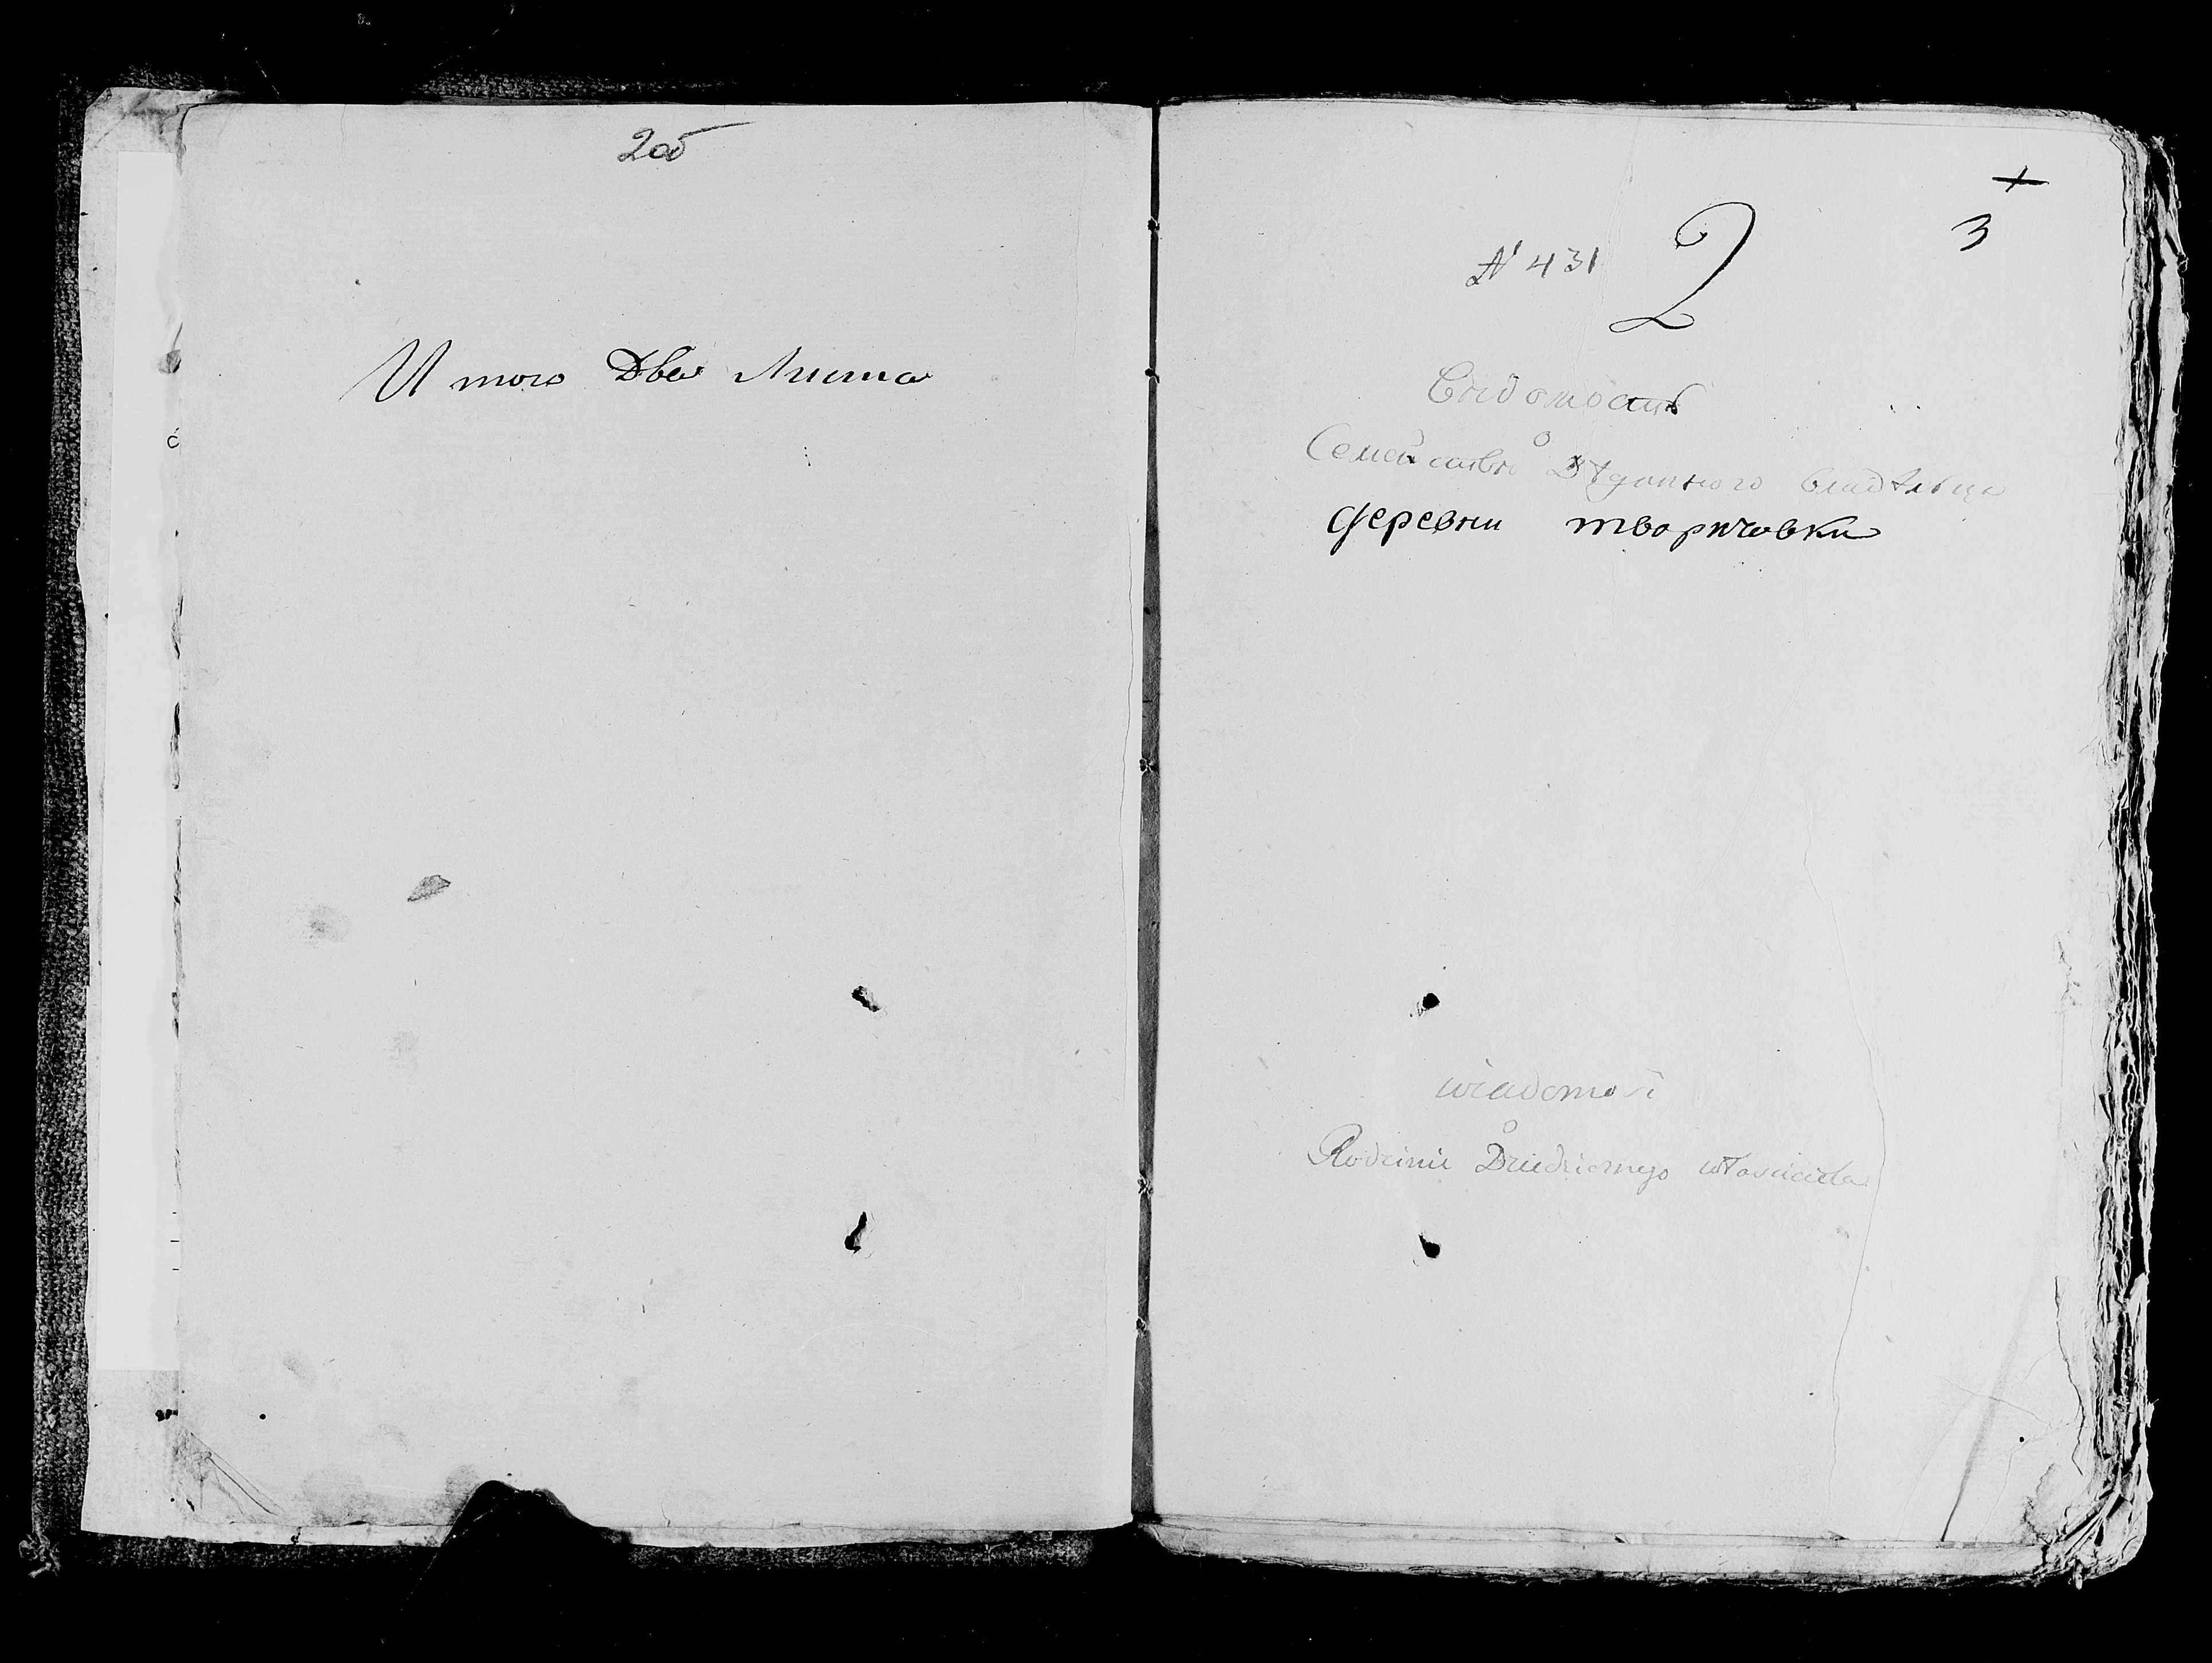 2об
Итого Два Листа
1
3
№ 431
2
Вѣдомость
о
Семействѣ Дѣдичного владѣльца
деревни творичовки
wiadomość
o
Rodzinie Dziedzicznego własciciela